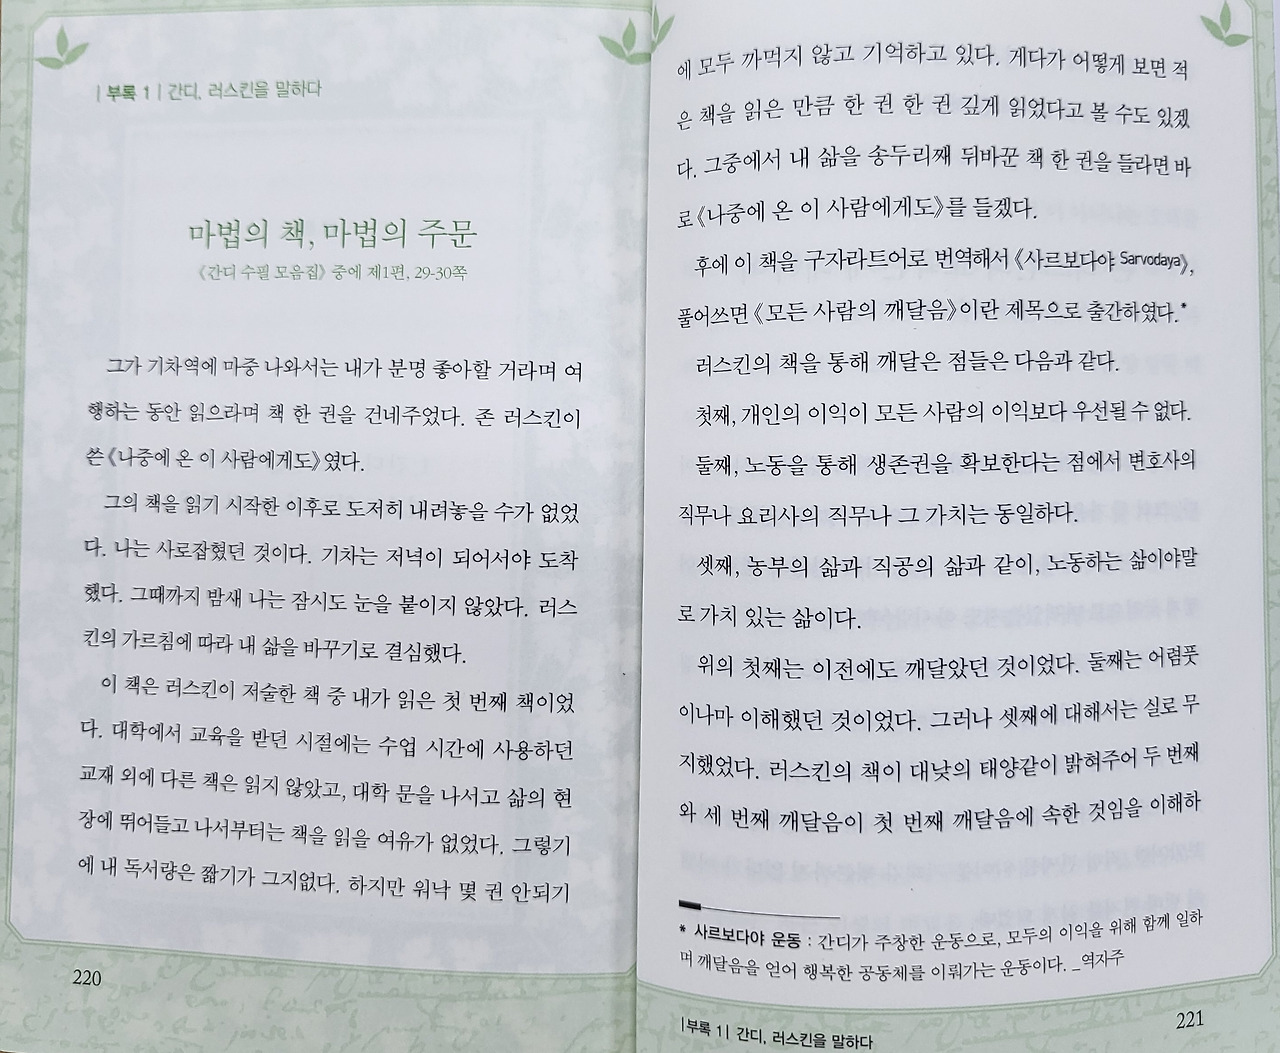 |부록 1| 간디, 러스킨을 말하다
마법의 책, 마법의 주문
《간디 수필 모음집》 중에 제1편, 29-30쪽
그가 기차역에 마중 나와서는 내가 분명 좋아할 거라며 여
행하는 동안 읽으라며 책 한 권을 건네주었다. 존 러스킨이
쓴 《나중에 온 이 사람에게도》였다.
그의 책을 읽기 시작한 이후로 도저히 내려놓을 수가 없었
다. 나는 사로잡혔던 것이다. 기차는 저녁이 되어서야 도착
했다. 그때까지 밤새 나는 잠시도 눈을 붙이지 않았다. 러스
킨의 가르침에 따라 내 삶을 바꾸기로 결심했다.
이 책은 러스킨이 저술한 책 중 내가 읽은 첫 번째 책이었
다. 대학에서 교육을 받던 시절에는 수업 시간에 사용하던
교재 외에 다른 책은 읽지 않았고, 대학 문을 나서고 삶의 현
장에 뛰어들고 나서부터는 책을 읽을 여유가 없었다. 그렇기
에 내 독서량은 짧기가 그지없다. 하지만 워낙 몇 권 안되기
220
에 모두 까먹지 않고 기억하고 있다. 게다가 어떻게 보면 적
은 책을 읽은 만큼 한 권 한 권 깊게 읽었다고 볼 수도 있겠
다. 그중에서 내 삶을 송두리째 뒤바꾼 책 한 권을 들라면 바
로 《나중에 온 이 사람에게도》를 들겠다.
후에 이 책을 구자라트어로 번역해서 《사르보다야 Sarvodaya》,
풀어쓰면 《모든 사람의 깨달음》이란 제목으로 출간하였다.*
러스킨의 책을 통해 깨달은 점들은 다음과 같다.
첫째, 개인의 이익이 모든 사람의 이익보다 우선될 수 없다.
둘째, 노동을 통해 생존권을 확보한다는 점에서 변호사의
직무나 요리사의 직무나 그 가치는 동일하다.
셋째, 농부의 삶과 직공의 삶과 같이, 노동하는 삶이야말
로 가치 있는 삶이다.
위의 첫째는 이전에도 깨달았던 것이었다. 둘째는 어렴풋
이나마 이해했던 것이었다. 그러나 셋째에 대해서는 실로 무
지했었다. 러스킨의 책이 대낮의 태양같이 밝혀주어 두 번째
와 세 번째 깨달음이 첫 번째 깨달음에 속한 것임을 이해하
* 사르보다야 운동 : 간디가 주창한 운동으로, 모두의 이익을 위해 함께 일하
며 깨달음을 얻어 행복한 공동체를 이뤄가는 운동이다. _역자주
|부록 1| 간디, 러스킨을 말하다
221